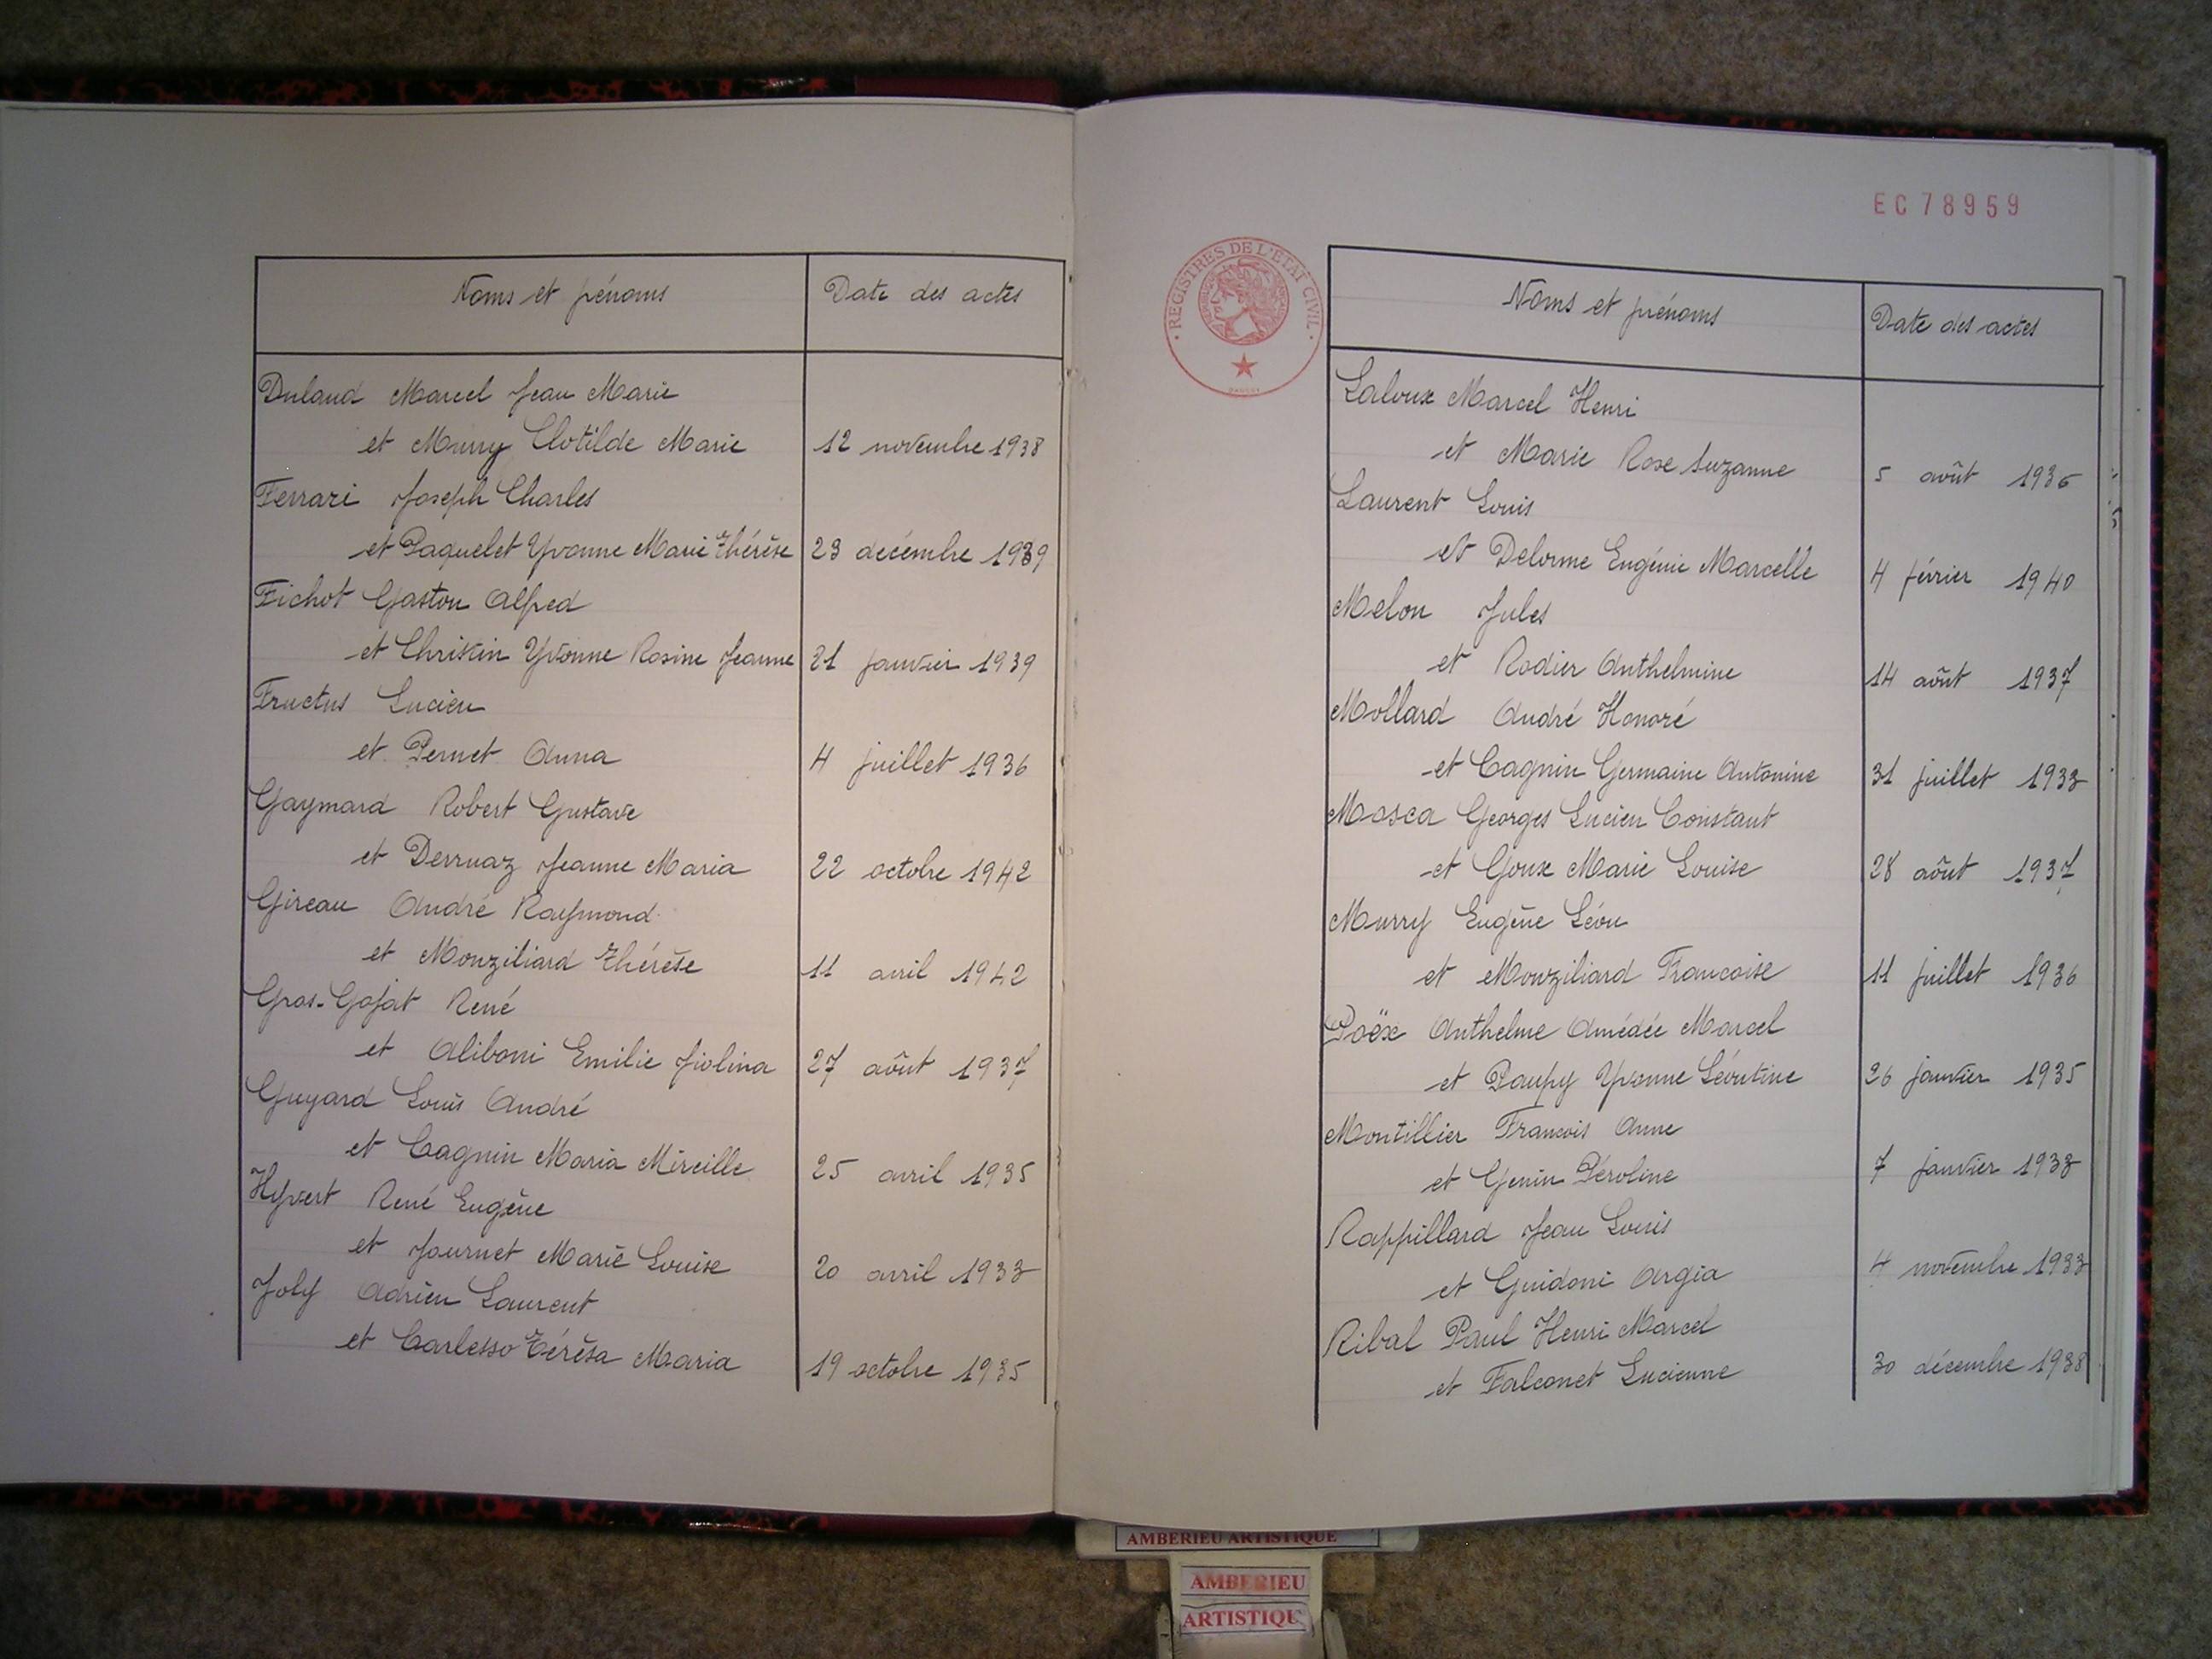 Noms et prénoms Date des actes
Dulaud Marcel Jean Marie
et Murry Clotilde Marie 12 novembre 1938
Ferrari Joseph Charles
et Paquelet Yvonne Marie Thérèse 23 décembre 1939
Fichot Gaston Alfred
et Christin Yvonne Rosine Jeanne 21 janvier 1939
Fructus Lucien
et Pernet Anna 4 juillet 1936
Gaymard Robert Gustave
et Derruaz Jeanne Maria 22 octobre 1942
Gireau André Raymond
et Monziliard Thérèse 11 avril 1942
Gros-Gojat René
et Aliboni Emilie Jiolina 27 aôut 1937
Guyard Louis André
et Cagnin Maria Mireille 25 avril 1935
Hyvert René Eugène
et Journet Marie Louise 20 avril 1933
Joly Adrien Laurent
et Carlesso Térèsa Maria 19 octobre 1935
EC 78959
REGISTRES DE L'ETAT CIVIL
Noms et prénoms Date des actes
Laloux Marcel Henri
et Marie Rose Suzanne 5 août 1936
Laurent Louis
et Delorme Eugénie Marcelle 4 février 1940
Melon Jules
et Rodier Anthelmine 14 aôut 1937
Mollard André Honoré
et Cagnin Germaine Antonine 31 juillet 1933
Mosca Georges Lucien Constant
et Goux Marie Louise 28 aôut 1937
Murry Eugène Léon
et Monziliard Francoise 11 juillet 1936
Poëx Anthelme Amédée Marcel
et Paupy Yvonne Léontine 26 janvier 1935
Montillier Francois Anne
et Genin Péroline 7 janvier 1933
Rappillard Jean Louis
et Guidoni Argia 4 novembre 1933
Ribal Paul Henri Marcel
et Falconet Lucienne 30 décembre 1938
AMBERIEU ARTISTIQUE
AMBERIEU
ARTISTIQU